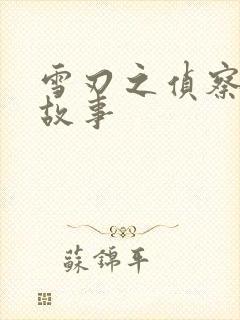 雪刃之偵察
故事
蘇錦年